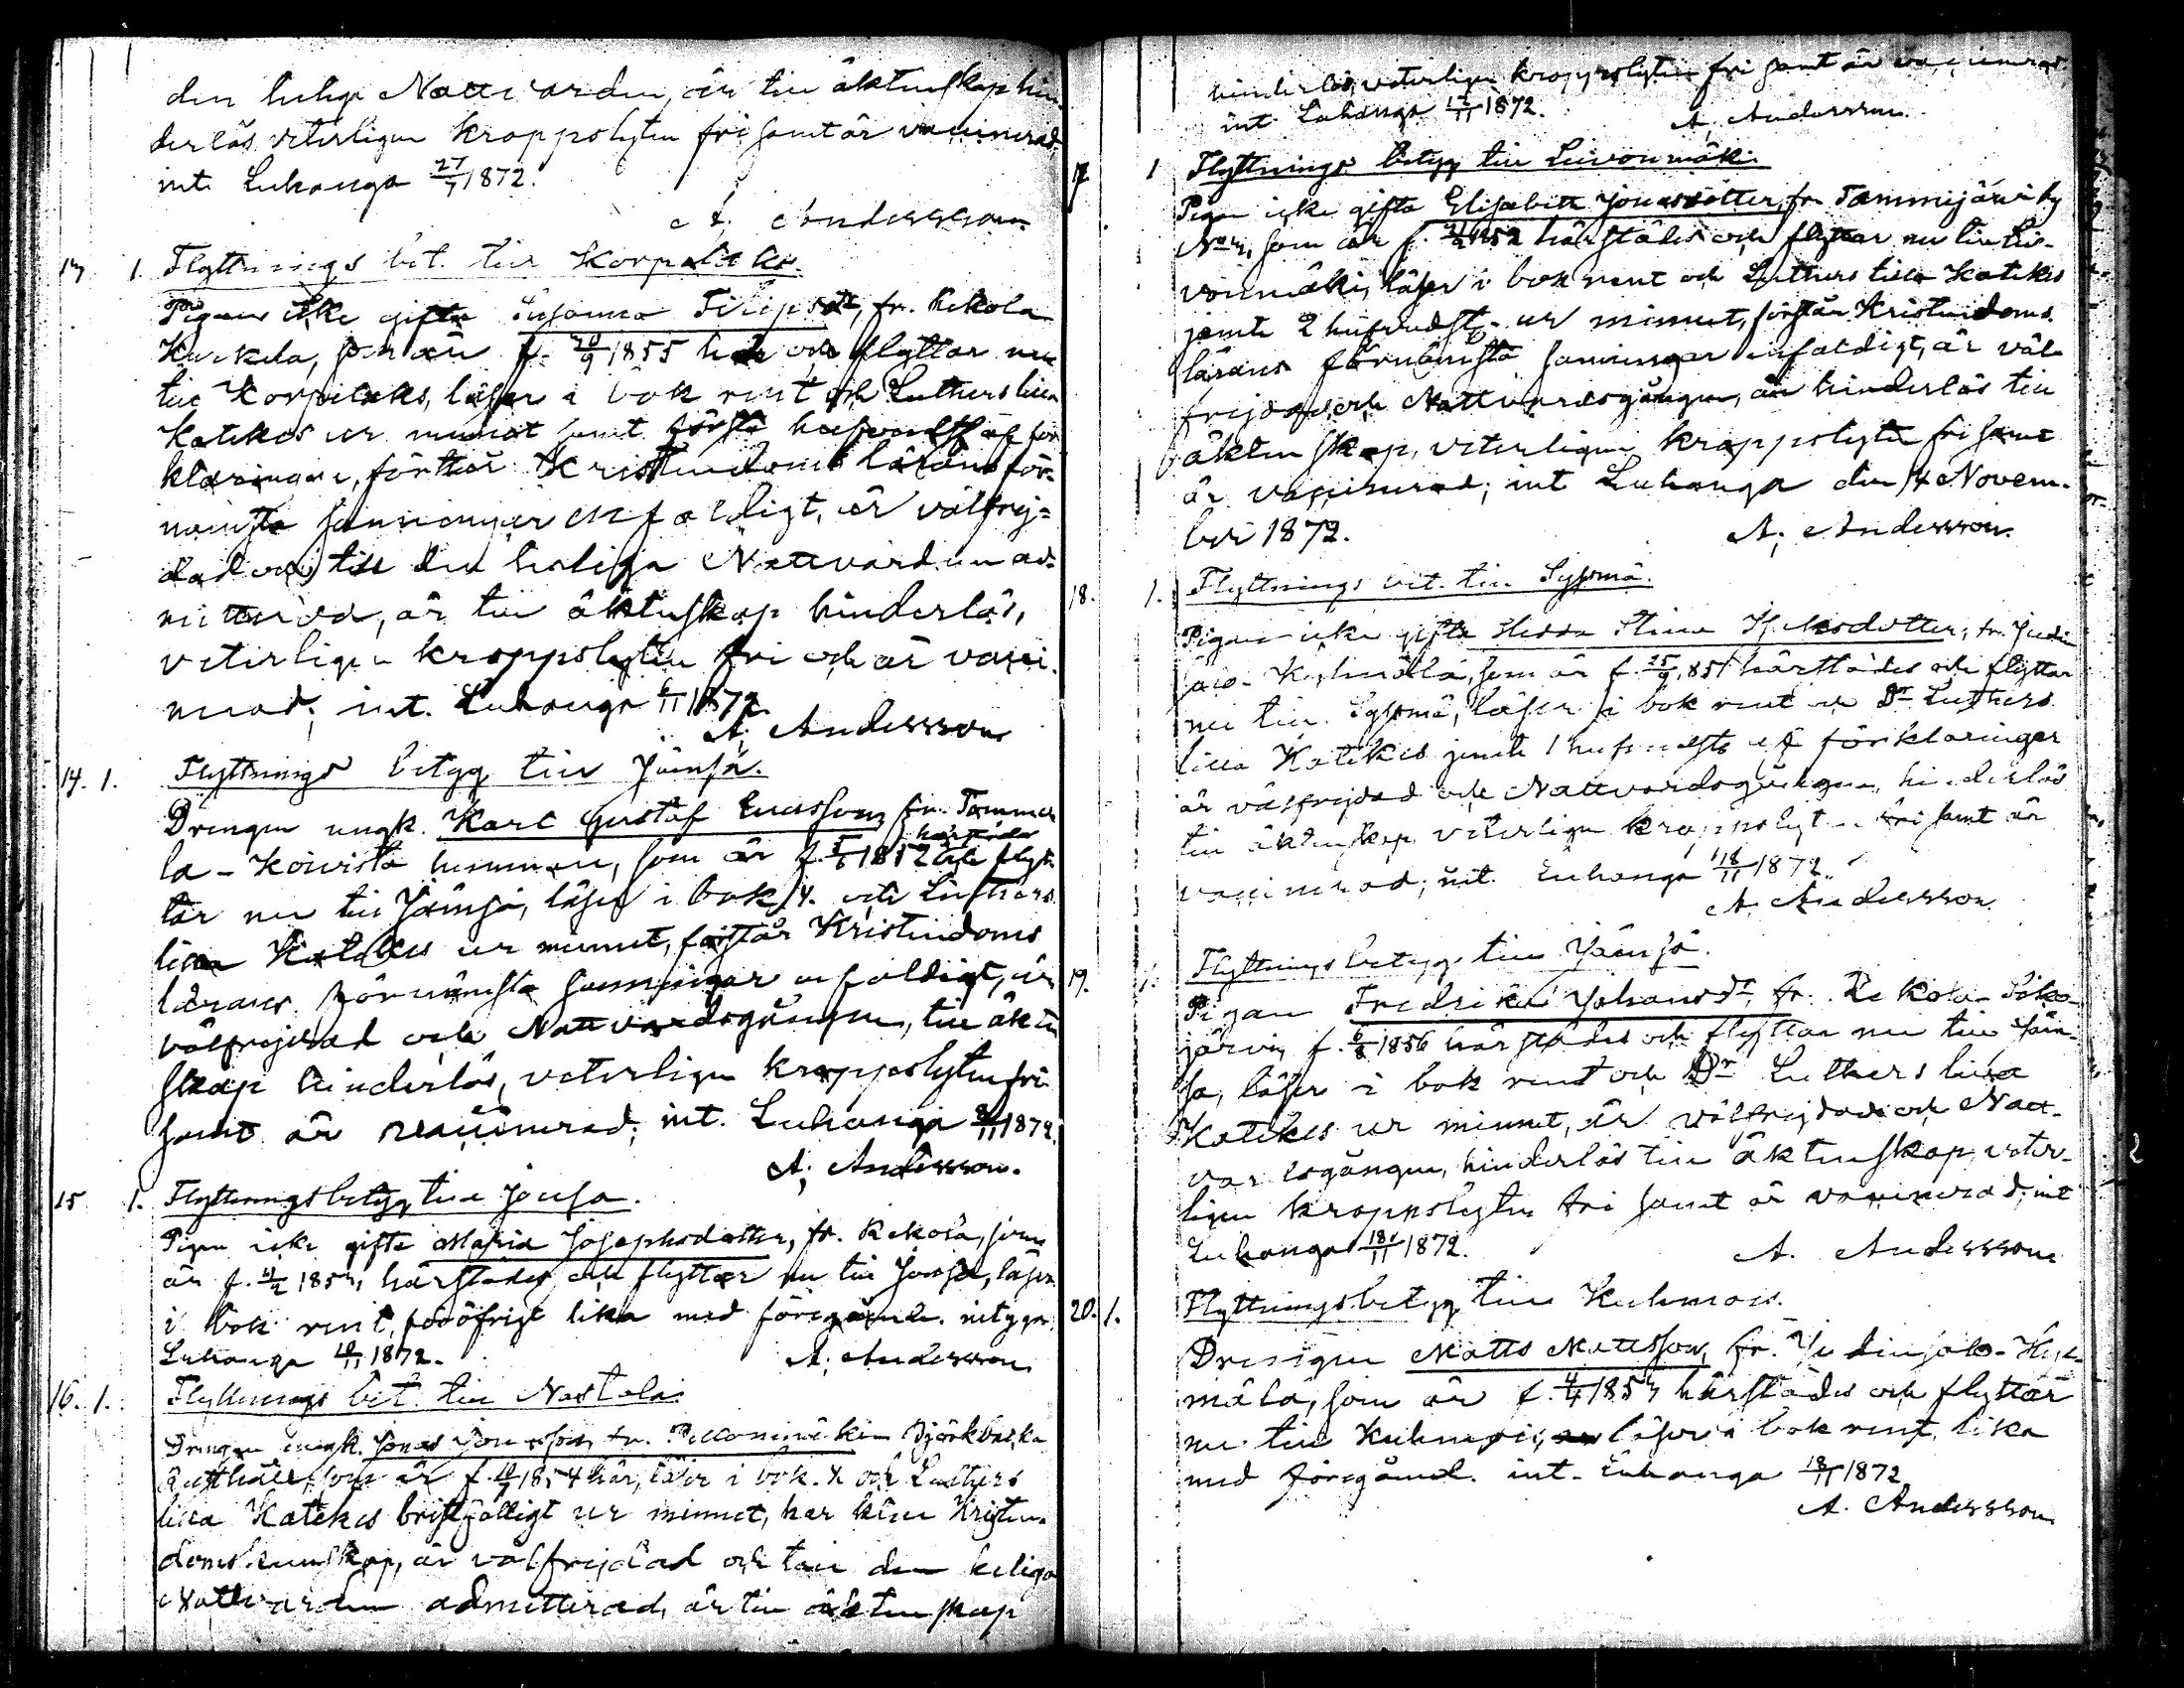 den heliga Nattvarden, är till äktenskap hin
derlös veterligen kroppslyten fri samt är vaccinerad
int. Luhanga 27/7 1872.
A. Andersson
13. 1. Flyttnings bet. till Korpilaks
Pigan icke gifta Susanna Filipsdr, fr. Rekola
Kurkela, som är f. 20/9 1855 här och flyttar nu
till Korpilaks, läser i bok rent och Luthers lilla
Katekes ur minnet samt första hufvudst af för
klaringarne, förstår Kristendoms lärans för-
nämsta sanningar enfaldigt, är välfrej-
dad och till den heliga Nattvarden ad-
mitterad, är till äktenskap hinderlös,
veterligen kroppslyten fri och är vacci-
nerad; int. Luhanga 6/11 1872
A. Andersson
14. 1. Flyttnings betyg till Jämsä.
Drengen ungk. Karl Gustaf Ericsson fr. Tammu
la-Koivisto hemman, som är f. 5/6 1852 härstädes och flyt-
tar nu till Jämsä, läser i bok 4. och Luthers
lilla Katekes ur minnet, förstår Kristendoms
lärans förnämsta sanningar enfaldigt, är
välfrejdad och Nattvardsgången, till äkten
skap hinderlös, veterligen kroppslyten fri
samt är vaccinerad; int. Luhanga 8/11 1872.
A. Andersson.
15 1. Flyttningsbetyg till Jämsä.
Pigan icke gifta Maria Josephsdotter, fr. Rekola, som
är f. 4/2 1854, härstädes och flyttar nu till Jämsä, läser
i bok rent, föröfrigt lika med föregående. intygar
Luhanga 10/11 1872.
A. Andersson
16. 1. Flyttnings bet. till Nastola
Drengen ungk. Jonas Jonasson fr. Pellonmäki Björkbacka
som är f. 10/7 1854 här, läser i bok. 4 och Luthers
lilla Katekes bristfälligt ur minnet, har klen Kristen-
domskunskap, är välfrejdad och till den heliga
Nattvarden admitterad, är till äktenskap
hinderlös, veterligen kroppslyten fri samt är vaccinerad
int. Luhanga 12/11 1872.
A. Andersson.
17 1 Flyttnings betyg till Leivonmäki
Pigan icke gifta Elisabeth Jonasdotter, fr. Tammijärvi by
som är f. 1852 härstädes och flyttar nu till Lei-
vonmäki, läser i bok rent och Luthers lilla Katekes
jemte 2 hufvudst. ur minnet, förstår Kristendoms
lärans förnämsta sanningar enfaldigt, är väl-
frejdad och Nattvardsgången, är hinderlös till
äktenskap, veterligen kroppslyten fri samt
är vaccinerad; int Luhanga den 14 Novem-
ber 1872.
A. Andersson.
18. 1. Flyttnings bet. till Sysmä.
Pigan icke gifta Hedda Stina Isaksdotter, fr. Judin
salo-Hyhmälä, som är f. 25/9 1851 härstädes och flyttar
nu till Sysmä, läser i bok rent och Dr Luthers
lilla Katekes jemte 1 hufvudst. af förklaringar
är välfrejdad och Nattvardsgången, hinderlös
till äktenskap veterligen kroppslyten fri samt är
vaccinerad; int. Luhanga 18/11 1872.
A. Andersson.
19. 1. Flyttnings betyg till Jämsä.
Pigan Fredrika Johansdr, fr. Rekola-
järvi, f. 6/8 1856 härstädes och flyttar nu till Jäm-
sä, läser i bok rent och Dr Luthers lilla
Katekes ur minnet, är välfrejdad och Natt-
vardsgången, hinderlös till äktenskap, veter-
ligen kroppslyten fri samt är vaccinerad; int
Luhanga 18/11 1872.
A. Andersson
20. 1. Flyttningsbetyg till Kuhmois.
Drengen Matts Mattsson, fr. Judinsalo-Hyh-
mälä, som är f. 4/4 1854 härstädes och flyttar
nu till Kuhmois, läser i bok rent, lika
med föregående. int. Luhanga 18/11 1872
A. Andersson